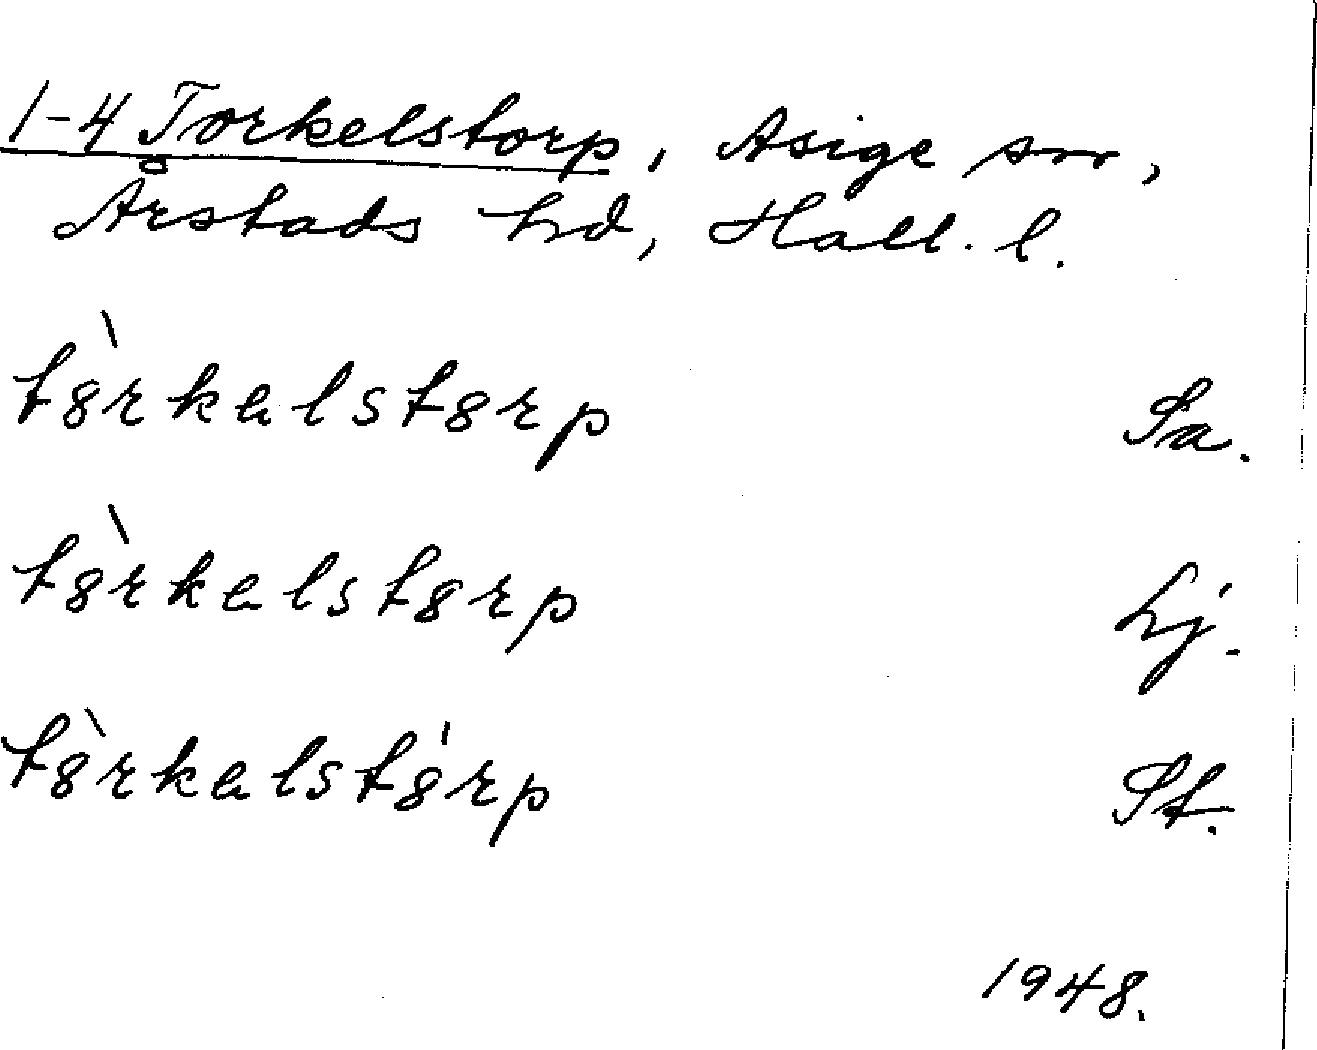 1-4 Torkelstorp, Asige sn,
Årstads hd, Hall. l.
tȣ̀rkəlstȣrp Sa.
tȣ̀rkəlstȣrp Lj.
tȣ̀rkəlstȣ́rp St.
1948.